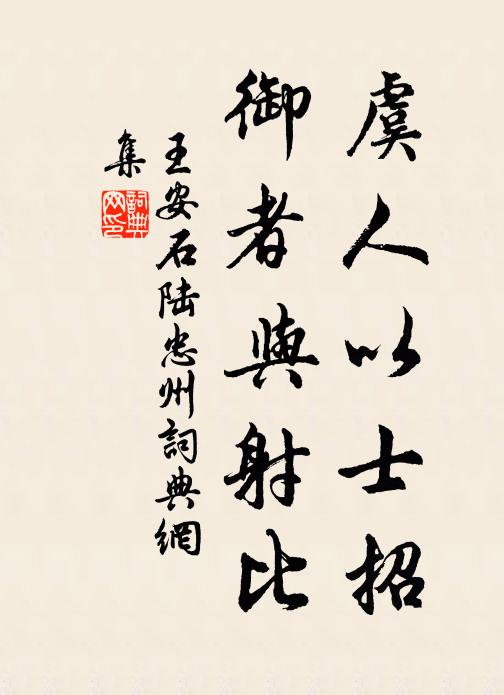 虞人以士招
御者與射比
王安石陆忠州詞典網
集
詞典
网印